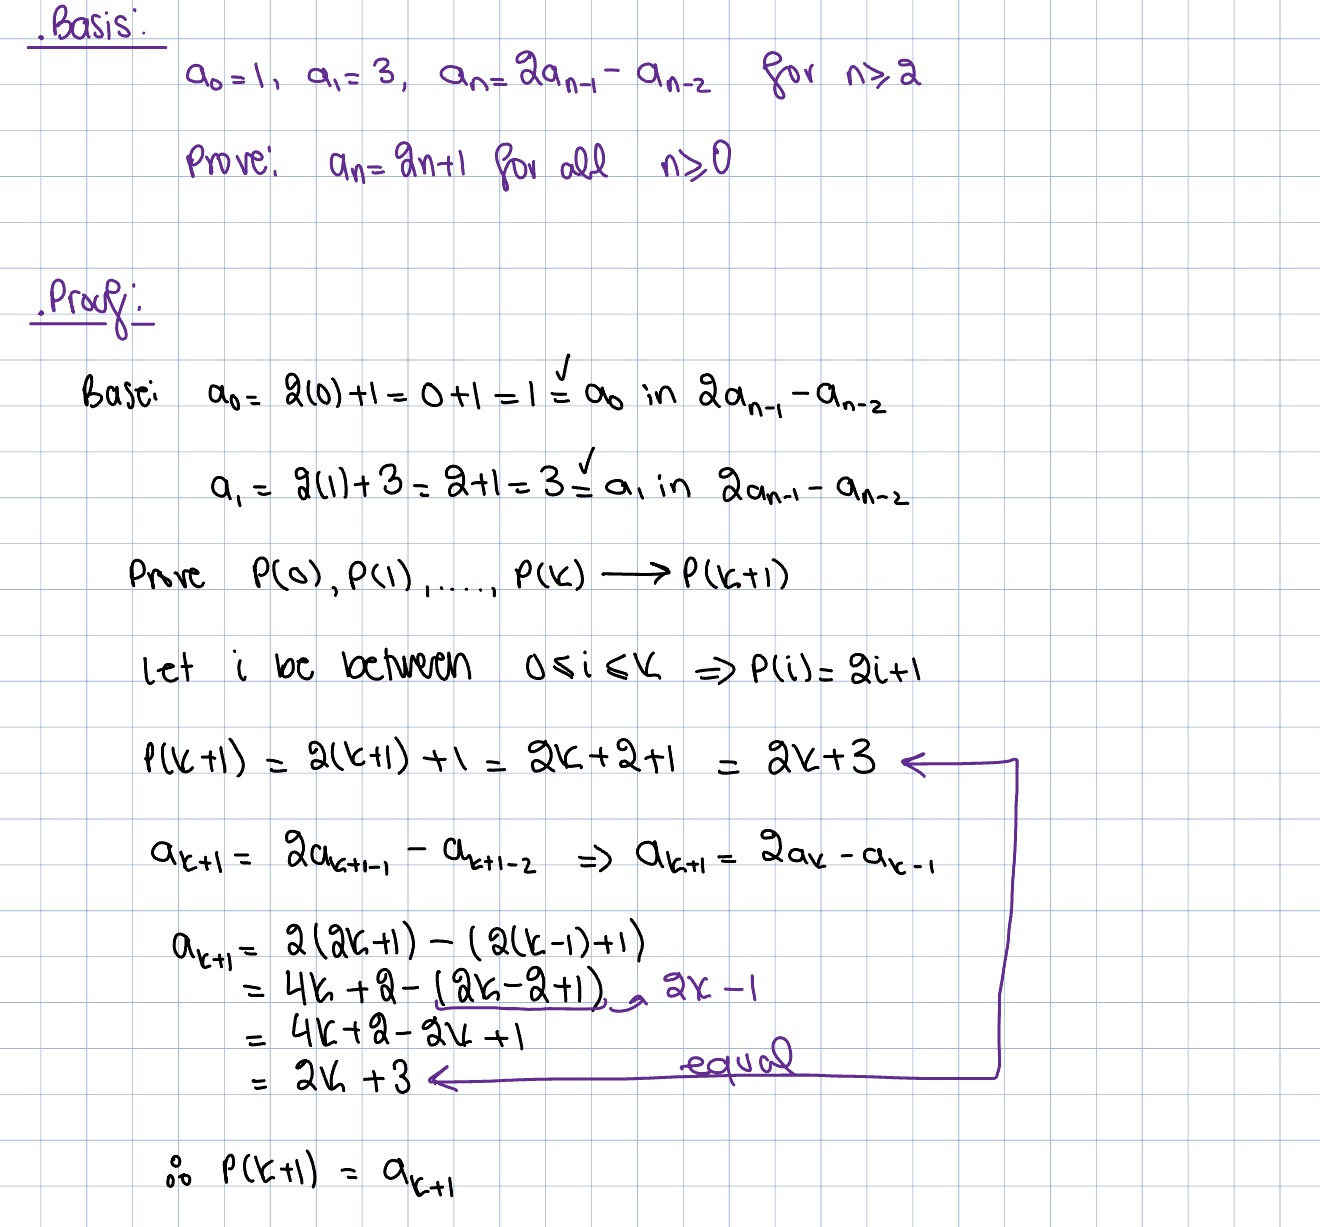 . Basis:
a₀ = 1, a₁ = 3, aₙ = 2aₙ₋₁ - aₙ₋₂ for n ≥ 2
Prove: aₙ = 2n+1 for all n ≥ 0
. Proof:
Base: a₀ = 2(0)+1 = 0+1 = 1 =✓ a₀ in 2aₙ₋₁ - aₙ₋₂
a₁ = 2(1)+3 = 2+1 = 3 =✓ a₁ in 2aₙ₋₁ - aₙ₋₂
Prove P(0), P(1), ....., P(k) → P(k+1)
Let i be between 0 ≤ i ≤ k ⇒ P(i) = 2i+1
P(k+1) = 2(k+1) + 1 = 2k+2+1 = 2k+3
aₖ₊₁ = 2aₖ₊₁₋₁ - aₖ₊₁₋₂ ⇒ aₖ₊₁ = 2aₖ - aₖ₋₁
aₖ₊₁ = 2(2k+1) - (2(k-1)+1)
= 4k + 2 - (2k-2+1) → 2k - 1
= 4k+2 - 2k + 1
= 2k + 3 equal
∴ P(k+1) = aₖ₊₁